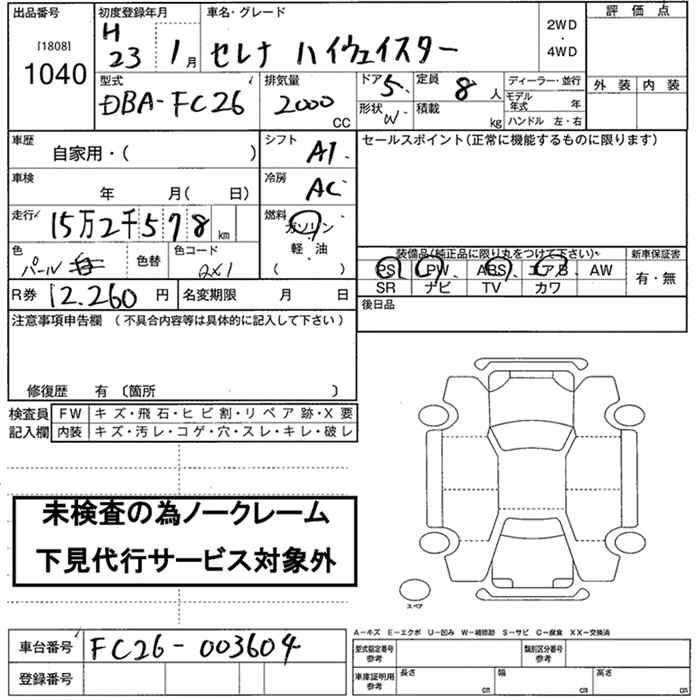 出品番号 初度登録年月 車名・グレード 評価点
[1808] H 23 1月 セレナ ハイウェイスター 2WD・4WD
1040 外装 内装
型式 排気量 ドア 5. 定員 8.人 ディーラー・並行
DBA-FC26 2000 CC 形状 W 積載 kg モデル年式 年
ハンドル 左・右
車歴 自家用・( ) シフト AT. セールスポイント(正常に機能するものに限ります)
車検 年 月( 日) 冷房 AC.
走行 15万2千578km 燃料 ガソリン
軽・油
( )
色 パール 白 色替 色コード QX1
装備品(純正品に限り丸をつけて下さい) 新車保証書
PS PW ABS エアB AW 有・無
SR ナビ TV カワ
R券 12.260円 名変期限 月 日 後日品
注意事項申告欄 (不具合内容等は具体的に記入して下さい)
修復歴 有 〔箇所 〕
検査員 FW キズ・飛石・ヒビ割・リペア跡・X要
記入欄 内装 キズ・汚レ・コゲ・穴・スレ・キレ・破レ
未検査の為ノークレーム
下見代行サービス対象外
スペア
A-キズ E-エクボ U-凹み W-補修跡 S-サビ C-腐食 XX-交換済
車台番号 FC26-003604 型式指定番号 参考 類別区分番号 参考
登録番号 車庫証明用 参考 長さ cm 幅 cm 高さ cm